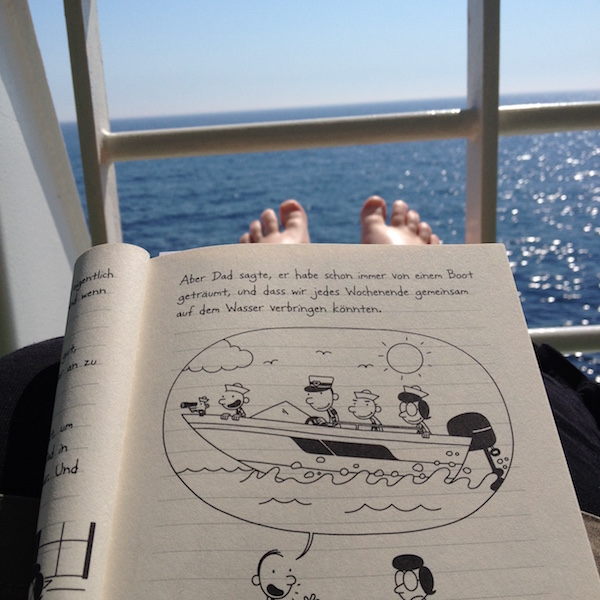 wenn
an zu
um
d in
Und
Aber Dad sagte, er habe schon immer von einem Boot
geträumt, und dass wir jedes Wochenende gemeinsam
auf dem Wasser verbringen könnten.